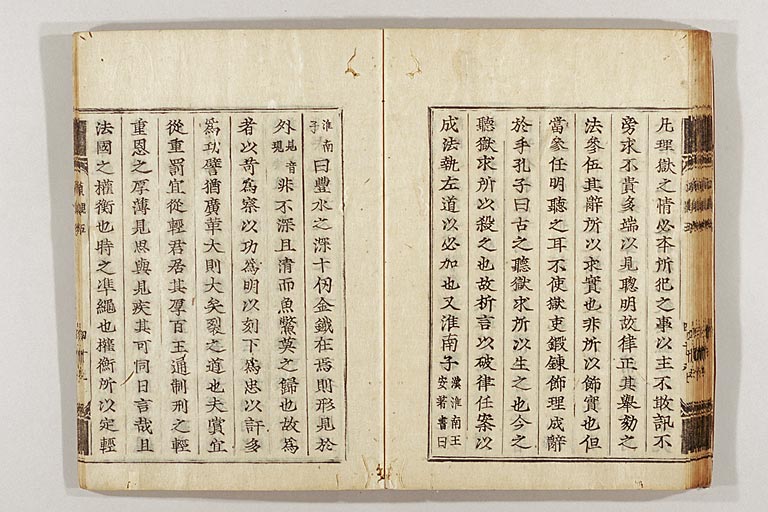 凡理獄之情必本所犯之事以主不敢訊不
旁求不貴多端以見聰明故律正其舉劾之
法參伍其辭所以求實也非所以飾實也但
當參任明聽之耳不使獄吏鍛鍊飾理成辭
於手孔子曰古之聽獄求所以生之也今之
聽獄求所以殺之也故折言以破律任案以
成法執左道以必加也又淮南子漢淮南王安著書曰
淮南子曰豐水之深十仞金鐵在焉則形見於
外見音現非不深且清而魚鱉莫之歸也故為
者以苛為察以功為明以刻下為忠以訐多
為功譬猶廣革大則大矣裂之道也夫賞宜
從重罰宜從輕君居其厚百王通制刑之輕
重恩之厚薄見思與見疾其可同日言哉且
法國之權衡也時之準繩也權衡所以定輕